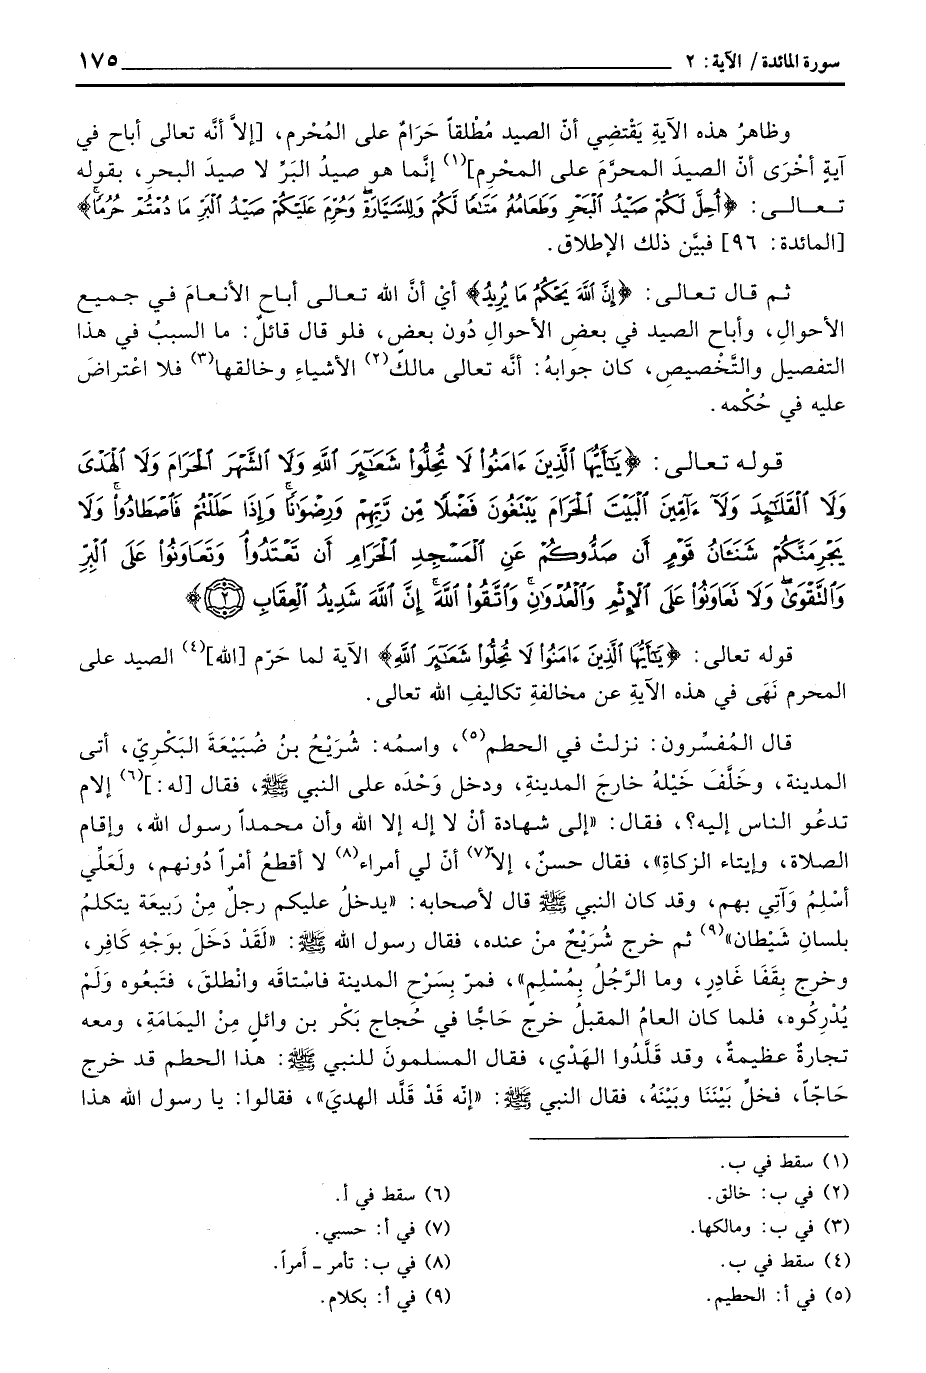 سورة المائدة/ الآية: ٢ ١٧٥
وظاهرُ هذه الآيةِ يَقْتضِي أنّ الصيد مُطْلقاً حَرَامٌ على المُحْرم، [إلاَّ أنَّه تعالى أباح في
آيةٍ أخْرَى أنّ الصيدَ المحرَّمَ على المحْرِم](١) إنَّما هو صيدُ البَرِّ لا صيدَ البحرِ، بقوله
تعالى: ﴿أُحِلَّ لَكُمْ صَيْدُ ٱلْبَحْرِ وَطَعَامُهُۥ مَتَٰعًا لَّكُمْ وَلِلسَّيَّارَةِۖ وَحُرِّمَ عَلَيْكُمْ صَيْدُ ٱلْبَرِّ مَا دُمْتُمْ حُرُمًاۗ﴾
[المائدة: ٩٦] فبيَّن ذلك الإطلاق.
ثم قال تعالى: ﴿إِنَّ ٱللَّهَ يَحْكُمُ مَا يُرِيدُ﴾ أيْ أنَّ الله تعالى أباح الأنعامَ في جميع
الأحوالِ، وأباح الصيد في بعضِ الأحوالِ دُون بعضٍ، فلو قال قائلٌ: ما السببُ في هذا
التفصيل والتَّخْصيصِ، كان جوابهُ: أنَّه تعالى مالكٌ(٢) الأشياءِ وخالقها(٣) فلا اعْتراضَ
عليه في حُكْمه.
قوله تعالى: ﴿يَٰٓأَيُّهَا ٱلَّذِينَ ءَامَنُوا۟ لَا تُحِلُّوا۟ شَعَٰٓئِرَ ٱللَّهِ وَلَا ٱلشَّهْرَ ٱلْحَرَامَ وَلَا ٱلْهَدْىَ
وَلَا ٱلْقَلَٰٓئِدَ وَلَآ ءَآمِّينَ ٱلْبَيْتَ ٱلْحَرَامَ يَبْتَغُونَ فَضْلًا مِّن رَّبِّهِمْ وَرِضْوَٰنًاۚ وَإِذَا حَلَلْتُمْ فَٱصْطَادُوا۟ۚ وَلَا
يَجْرِمَنَّكُمْ شَنَـَٔانُ قَوْمٍ أَن صَدُّوكُمْ عَنِ ٱلْمَسْجِدِ ٱلْحَرَامِ أَن تَعْتَدُوا۟ۘ وَتَعَاوَنُوا۟ عَلَى ٱلْبِرِّ
وَٱلتَّقْوَىٰۖ وَلَا تَعَاوَنُوا۟ عَلَى ٱلْإِثْمِ وَٱلْعُدْوَٰنِۚ وَٱتَّقُوا۟ ٱللَّهَۖ إِنَّ ٱللَّهَ شَدِيدُ ٱلْعِقَابِ (٢)﴾
قوله تعالى: ﴿يَٰٓأَيُّهَا ٱلَّذِينَ ءَامَنُوا۟ لَا تُحِلُّوا۟ شَعَٰٓئِرَ ٱللَّهِ﴾ الآية لما حَرّم [الله](٤) الصيد على
المحرم نَهَى في هذه الآيةِ عن مخالفةِ تكاليفِ الله تعالى.
قال المُفسِّرون: نزلتْ في الحطم(٥)، واسمُه: شُرَيْحُ بنُ ضُبَيْعَةَ البَكْرِيّ، أتى
المدينة، وخَلَّفَ خَيْلهُ خارجَ المدينةِ، ودخل وَحْدَه على النبي ﷺ، فقال [له:](٦) إلام
تدعُو الناس إليه؟، فقال: «إلى شهادة أنْ لا إله إلا الله وأن محمداً رسول الله، وإقام
الصلاة، وإيتاء الزكاةِ»، فقال حسنٌ، إلاَّ(٧) أنّ لي أمراء(٨) لا أقطعُ أمْراً دُونهم، ولَعَلِّي
أسْلِمُ وَآتِي بهم، وقد كان النبي ﷺ قال لأصحابه: «يدخلُ عليكم رجلٌ مِنْ رَبيعة يتكلمُ
بلسانِ شَيْطان»(٩) ثم خرج شُرَيْحٌ منْ عنده، فقال رسول الله ﷺ: «لَقَدْ دَخَلَ بوَجْهِ كَافِر،
وخرج بِقَفَا غَادِرٍ، وما الرَّجُلُ بِمُسْلِمٍ»، فمرّ بِسَرْحِ المدينة فاستاقه وانْطلقَ، فتَبعُوه ولَمْ
يُدْرِكُوه، فلما كان العامُ المقبلُ خرجَ حَاجًّا في حُجاج بَكْر بن وائلٍ مِنْ اليَمَامَةِ، ومعه
تجارةٌ عظيمةٌ، وقد قَلَّدُوا الهَدْي، فقال المسلمونَ للنبي ﷺ: هذا الحطم قد خرج
حَاجّاً، فخلِّ بَيْنَنَا وبَيْنَهُ، فقال النبي ﷺ: «إنّه قَدْ قَلَّد الهديَ»، فقالوا: يا رسول الله هذا
(١) سقط في ب.
(٢) في ب: خالق.
(٣) في ب: ومالكها.
(٤) سقط في ب.
(٥) في أ: الحطيم.
(٦) سقط في أ.
(٧) في أ: حسبي.
(٨) في ب: تأمر ـ أمراً.
(٩) في أ: بكلام.